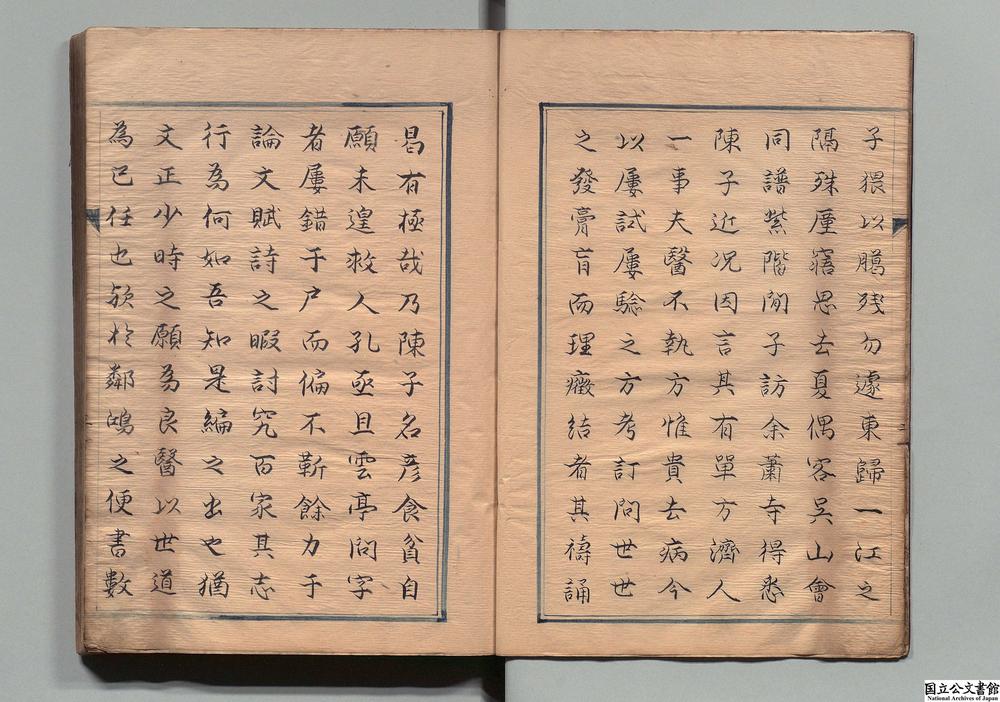 子猥以臈殘勿遽東歸一江之
隔殊廑寤思去夏偶客吳山會
同譜紫階閒子訪余蕭寺得悉
陳子近况因言其有單方濟人
一事夫醫不執方惟貴去病今
以屢試屢驗之方考訂問世世
之發膏肓而理癥結者其禱誦
曷有極哉乃陳子名彥食貧自
願未遑救人孔亟且雲亭問字
者屢錯于户而偏不靳餘力于
論文賦詩之暇討究百家其志
行為何如吾知是編之出也猶
文正少時之願為良醫以世道
為己任也欤於鄰鴻之便書數
国立公文書館
National Archives of Japan